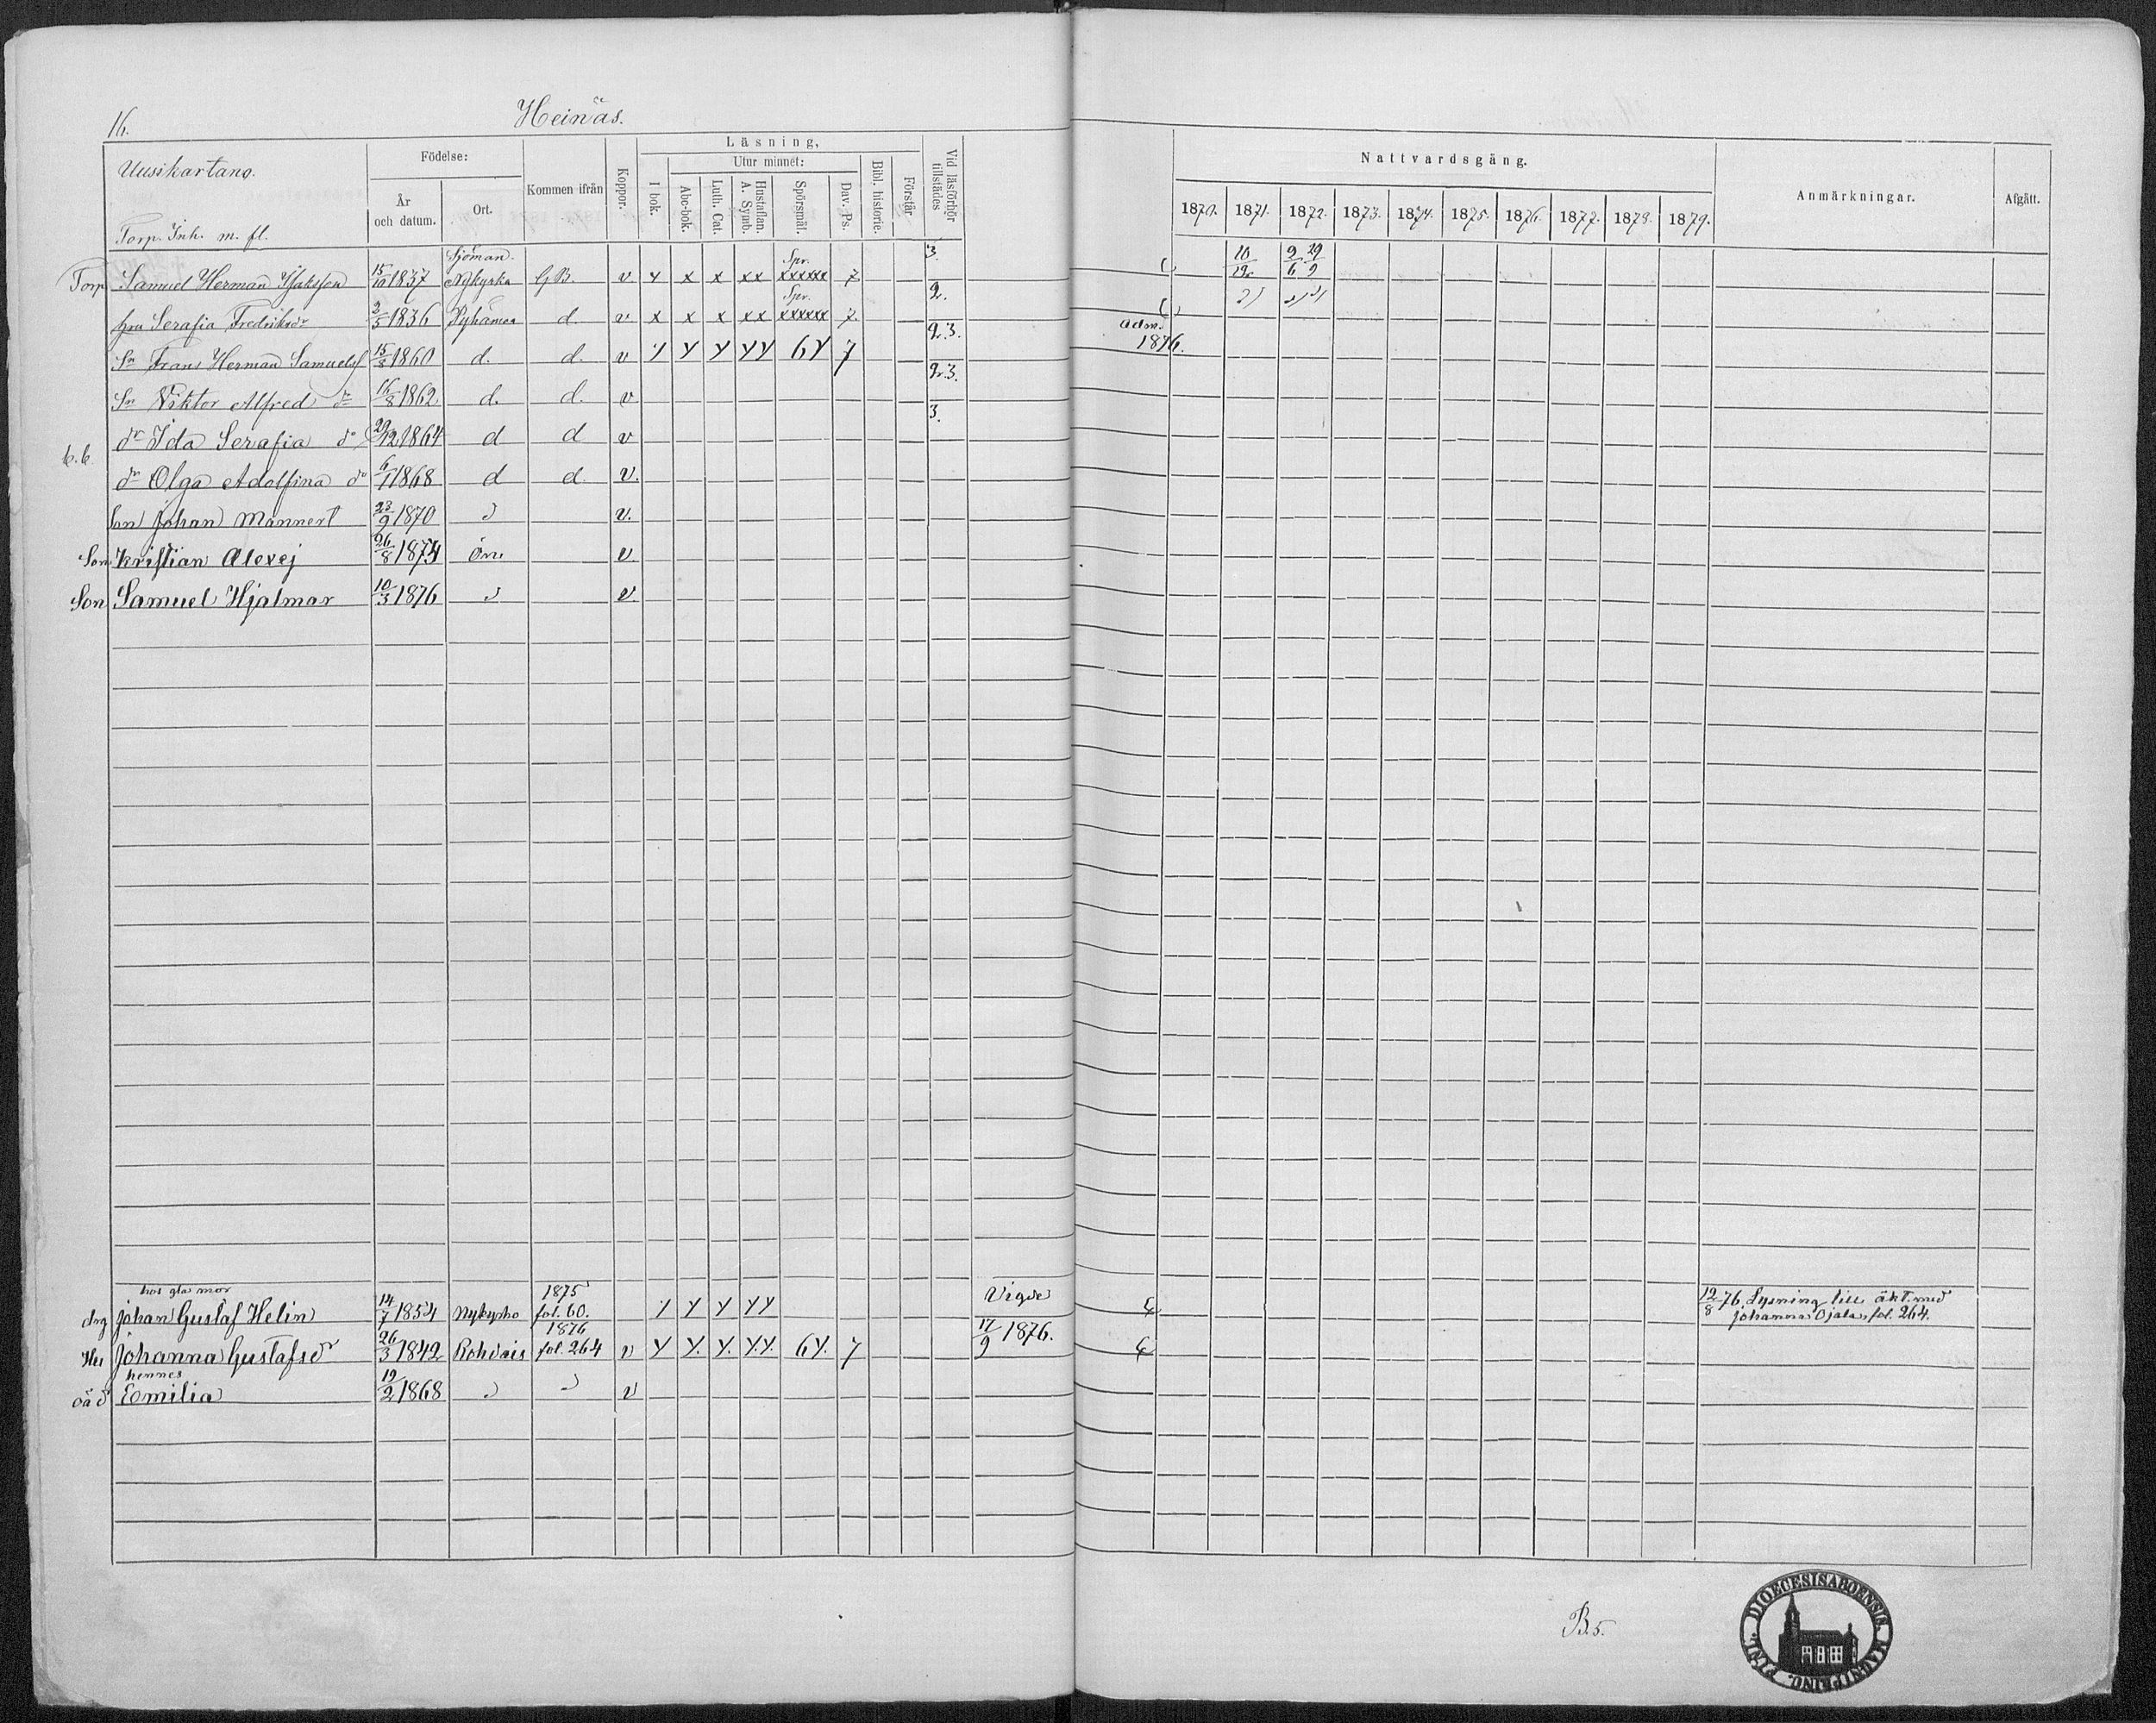 16.
Heinäs.
Uusikartano.
Torp. Inh. m. fl.
Födelse:
År och datum.
Ort.
Kommen ifrån
Koppor.
Läsning,
I bok.
Utur minnet:
Abc-bok.
Luth. Cat.
Hustaflan. A. Symb.
Spörsmål.
Dav. Ps.
Bibl. historie.
Förstår
Vid läsförhör tillstädes
Nattvardsgång.
1870. 1871. 1872. 1873. 1874. 1875. 1876. 1877. 1878. 1879.
Anmärkningar.
Afgått.
Sjöman.
Torp Samuel Herman Isaksson 15/10 1837 Nykyrka G.B. v. x x x xx Spr. xxxxxx 7 3. 10/12 9/6 29/9
hru Serafia Fredriksdr 2/5 1836 Pyhämaa d. v x x x xx Spr. xxxxxx 7. 2.
Sn Frans Herman Samuelsf 15/8 1860 d. d. v y y y yy 6y 7 2.3. Adm. 1876.
Sn Viktor Alfred do 16/8 1862 d. d. v 2.3.
dr Ida Serafia do 29/12 1864 d d v 3.
dr Olga Adolfina do 6/1 1868 d d v.
Son Johan Mannert 23/9 1870 d v.
Son Kristian Alexej 26/8 1873 v.
Son Samuel Hjalmar 10/3 1876 d v.
hos gla mor 1875
drg Johan Gustaf Helin 14/7 1854 Nykyrko fol. 60. y y y yy Vigde 12/8 76. Lysning till äkt. med Johanna Ojala, fol. 264.
1876
Hu Johanna Gustafsdr 26/3 1842 Rohdais fol. 264 v y y. y. y.y. 6y. 7 17/9 1876.
hennes
oäd Emilia 19/2 1868 d d v
B.5.
DIOECESIS ABOENSIS. MAGNI PRINC. FINL.